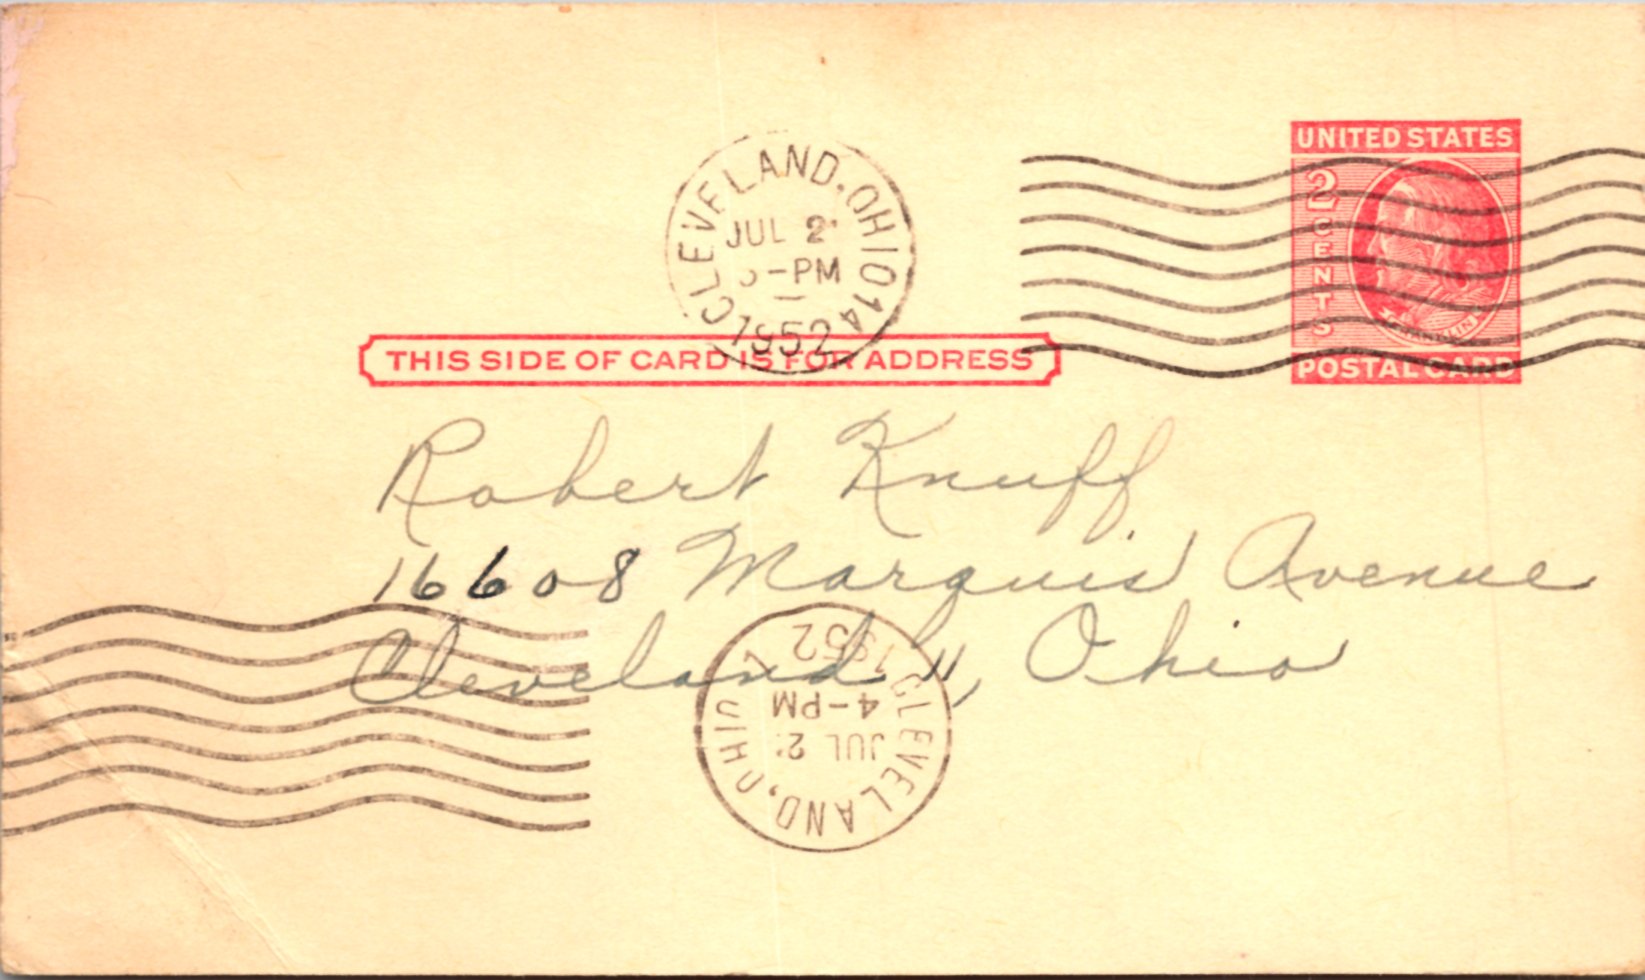 CLEVELAND, OHIO 14
JUL 2
-PM
1952
UNITED STATES
2 CENTS
FRANKLIN
POSTAL CARD
THIS SIDE OF CARD IS FOR ADDRESS
Robert Knuff
16608 Marquis Avenue
Cleveland 11, Ohio
CLEVELAND, OHIO
JUL 2
4-PM
1952